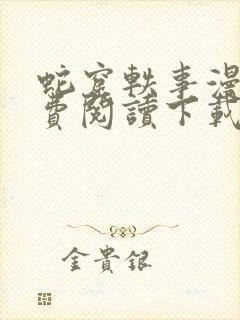 蛇窟軼事漫
費閱讀下載
金貴銀